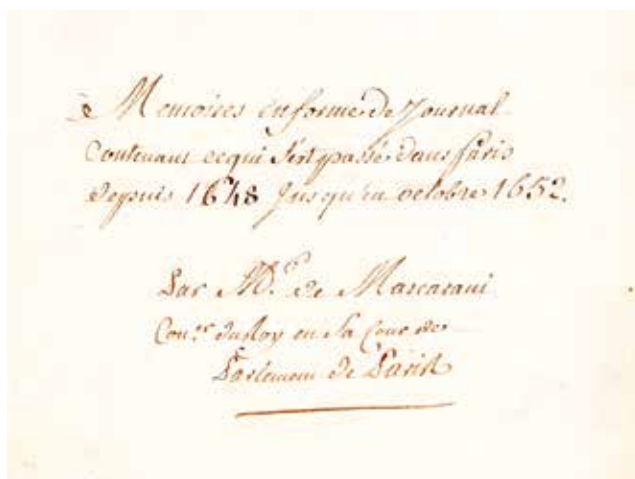 Memoires en forme de Journal
Contenant ce qui s'est passé dans Paris
depuis 1648 Jusqu'en octobre 1652.
Par Mr. de Mascarani
Conser. du Roy en Sa Cour de
Parlement de Paris